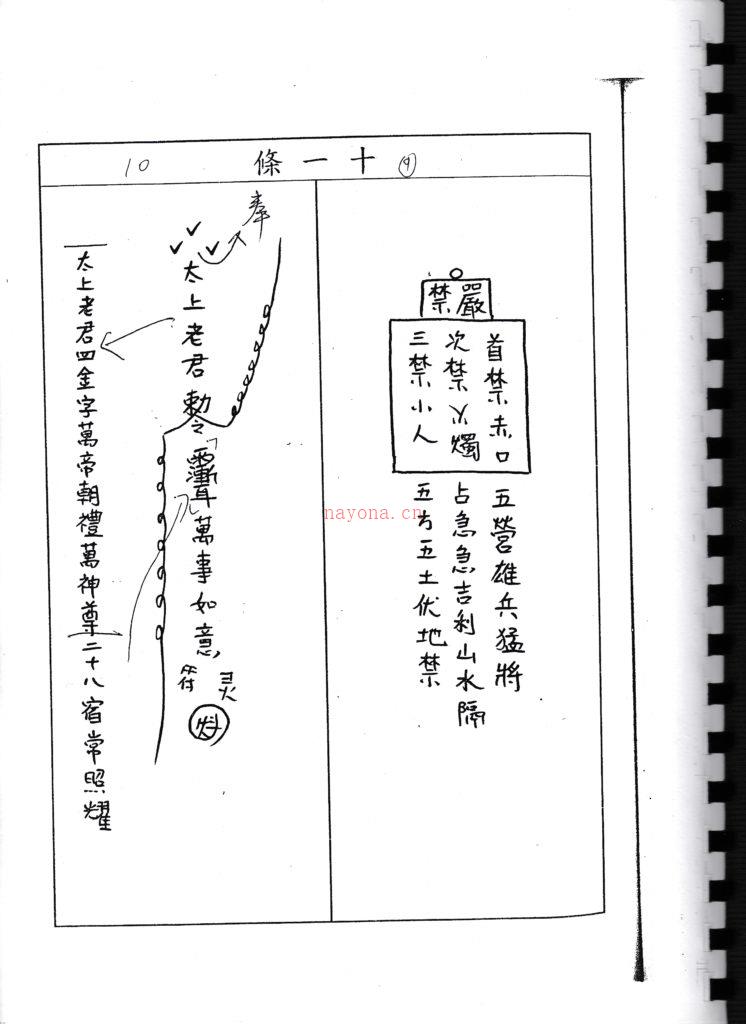 10
條一十
9
嚴禁
首禁赤口
次禁火燭
三禁小人
五營雄兵猛將
占急急吉利山水隔
五方五土伏地禁
奉
太上老君勅令
萬事如意
符
灵
太上老君四金字萬帝朝禮萬神尊二十八宿常照耀
nayona.cn